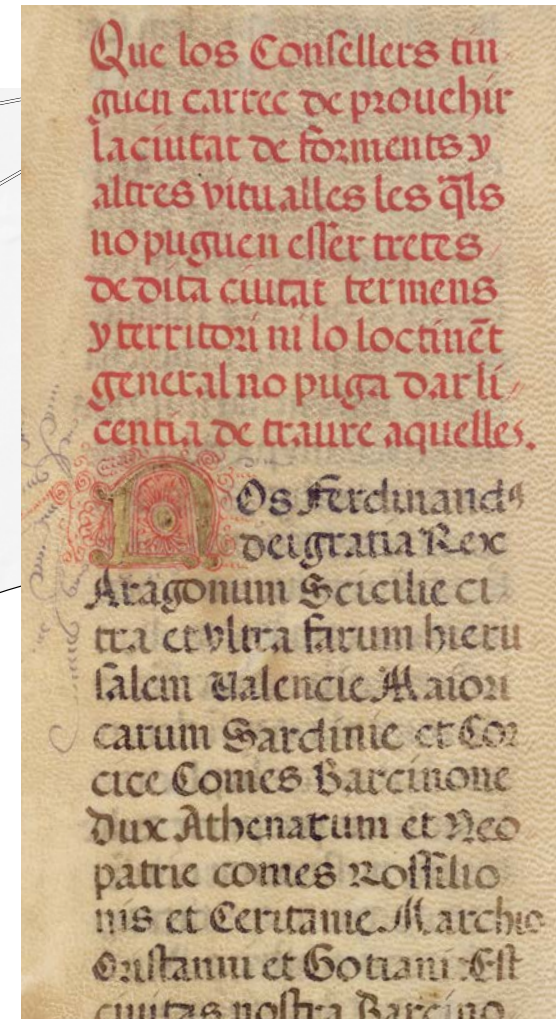 Que los Consellers tin
guen carrec de prouehir
la ciutat de forments y
altres vitualles les q̄ls
no puguen esser tretes
de dita ciutat termens
y territori ni lo loctinēt
general no puga dar li
centia de traure aquelles.
Nos Ferdinandꝰ
dei gratia Rex
Aragonum Scicilie ci
tra et vltra farum hieru
salem Valencie Maiori
carum Sardinie et Cor
cice Comes Barcinone
Dux Athenarum et Neo
patrie comes Rossilio
nis et Ceritanie Marchio
Oristanni et Gotiani Est
ciuitas nostra Barcino